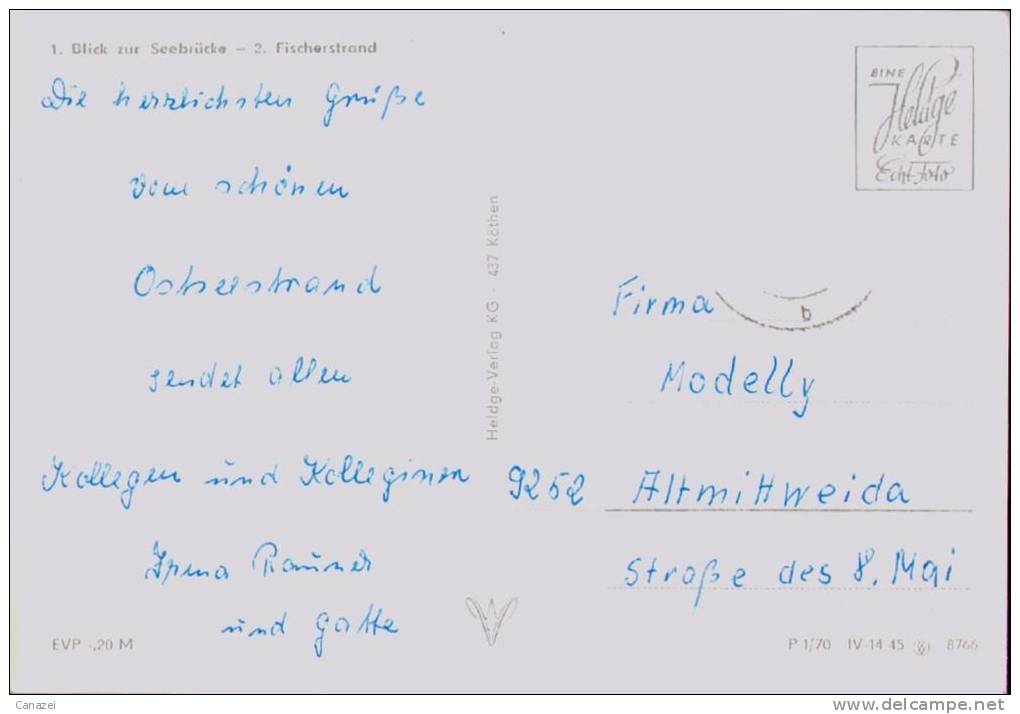 1. Blick zur Seebrücke – 2. Fischerstrand
Die herzlichsten Grüße
vom schönen
Ostseestrand
sendet allen
Kollegen und Kolleginen
und Gatte
EVP -,20 M
Heldge-Verlag KG · 437 Köthen
EINE
Heldge
KARTE
Echt-Foto
b
Firma
Modelly
9252 Altmittweida
Straße des 8. Mai
P 1/70 IV-14-45 8766
Canazei
www.delcampe.net